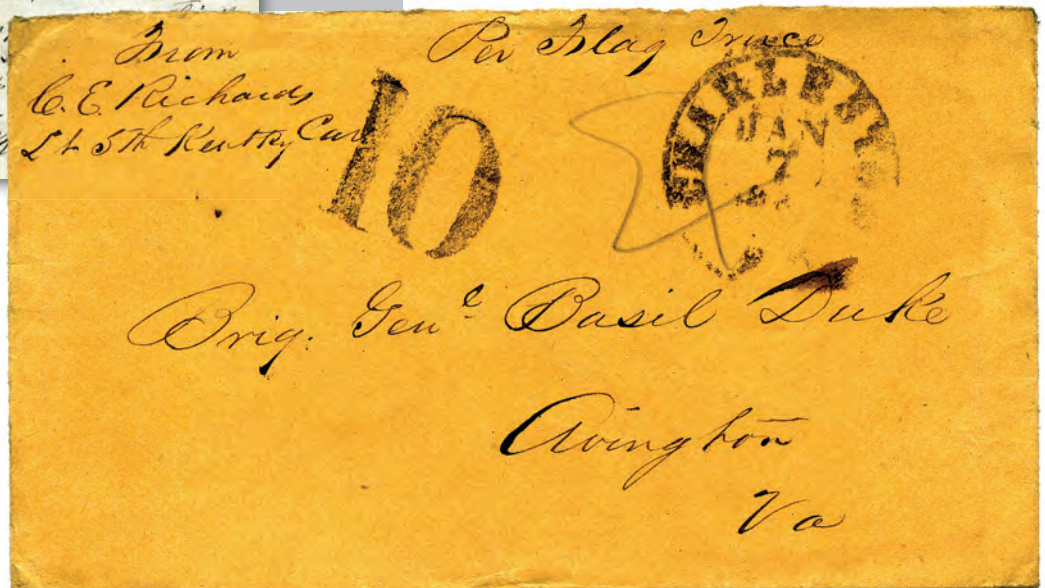 From
C. E. Richards
Lt 5th Kentky Cav
Per Flag Truce
10
CHARLEST
JAN
7
Brig. Genl Basil Duke
Avington
Va